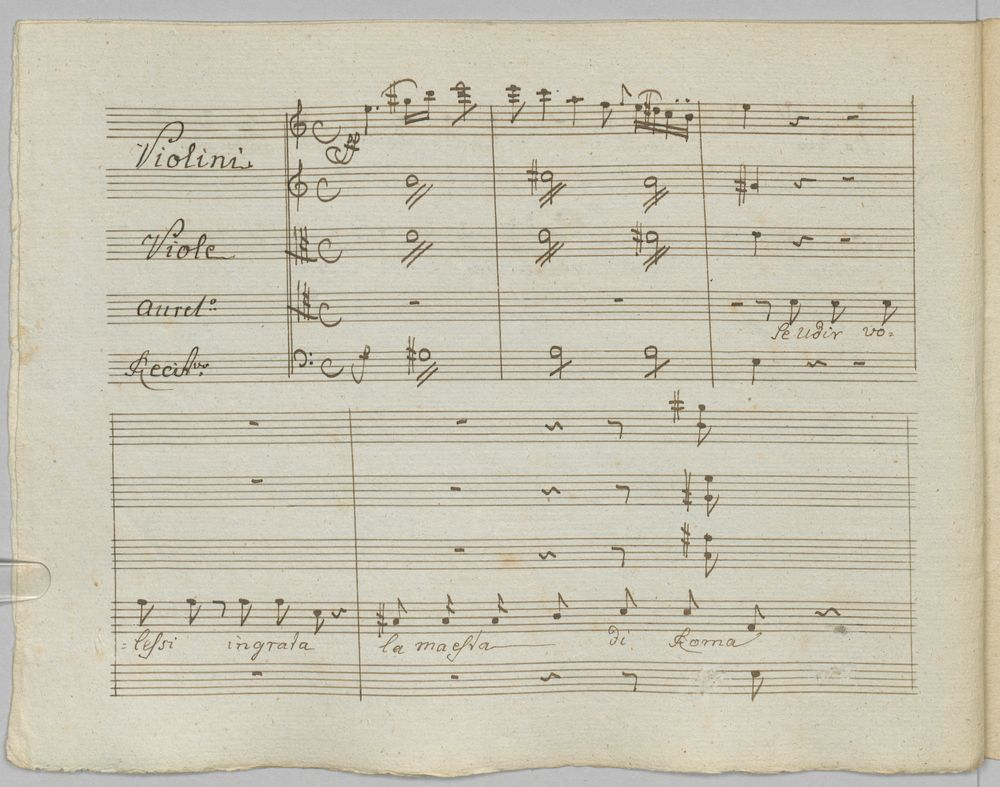 Violini
Viole
Aurel.o
Se udir vo=
Recit.vo
=lessi ingrata la maestà di Roma